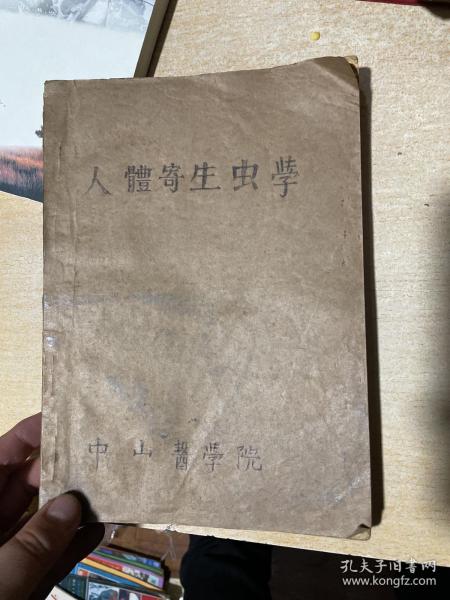 人體寄生虫學
中山醫學院
孔夫子旧书网
www.kongfz.com